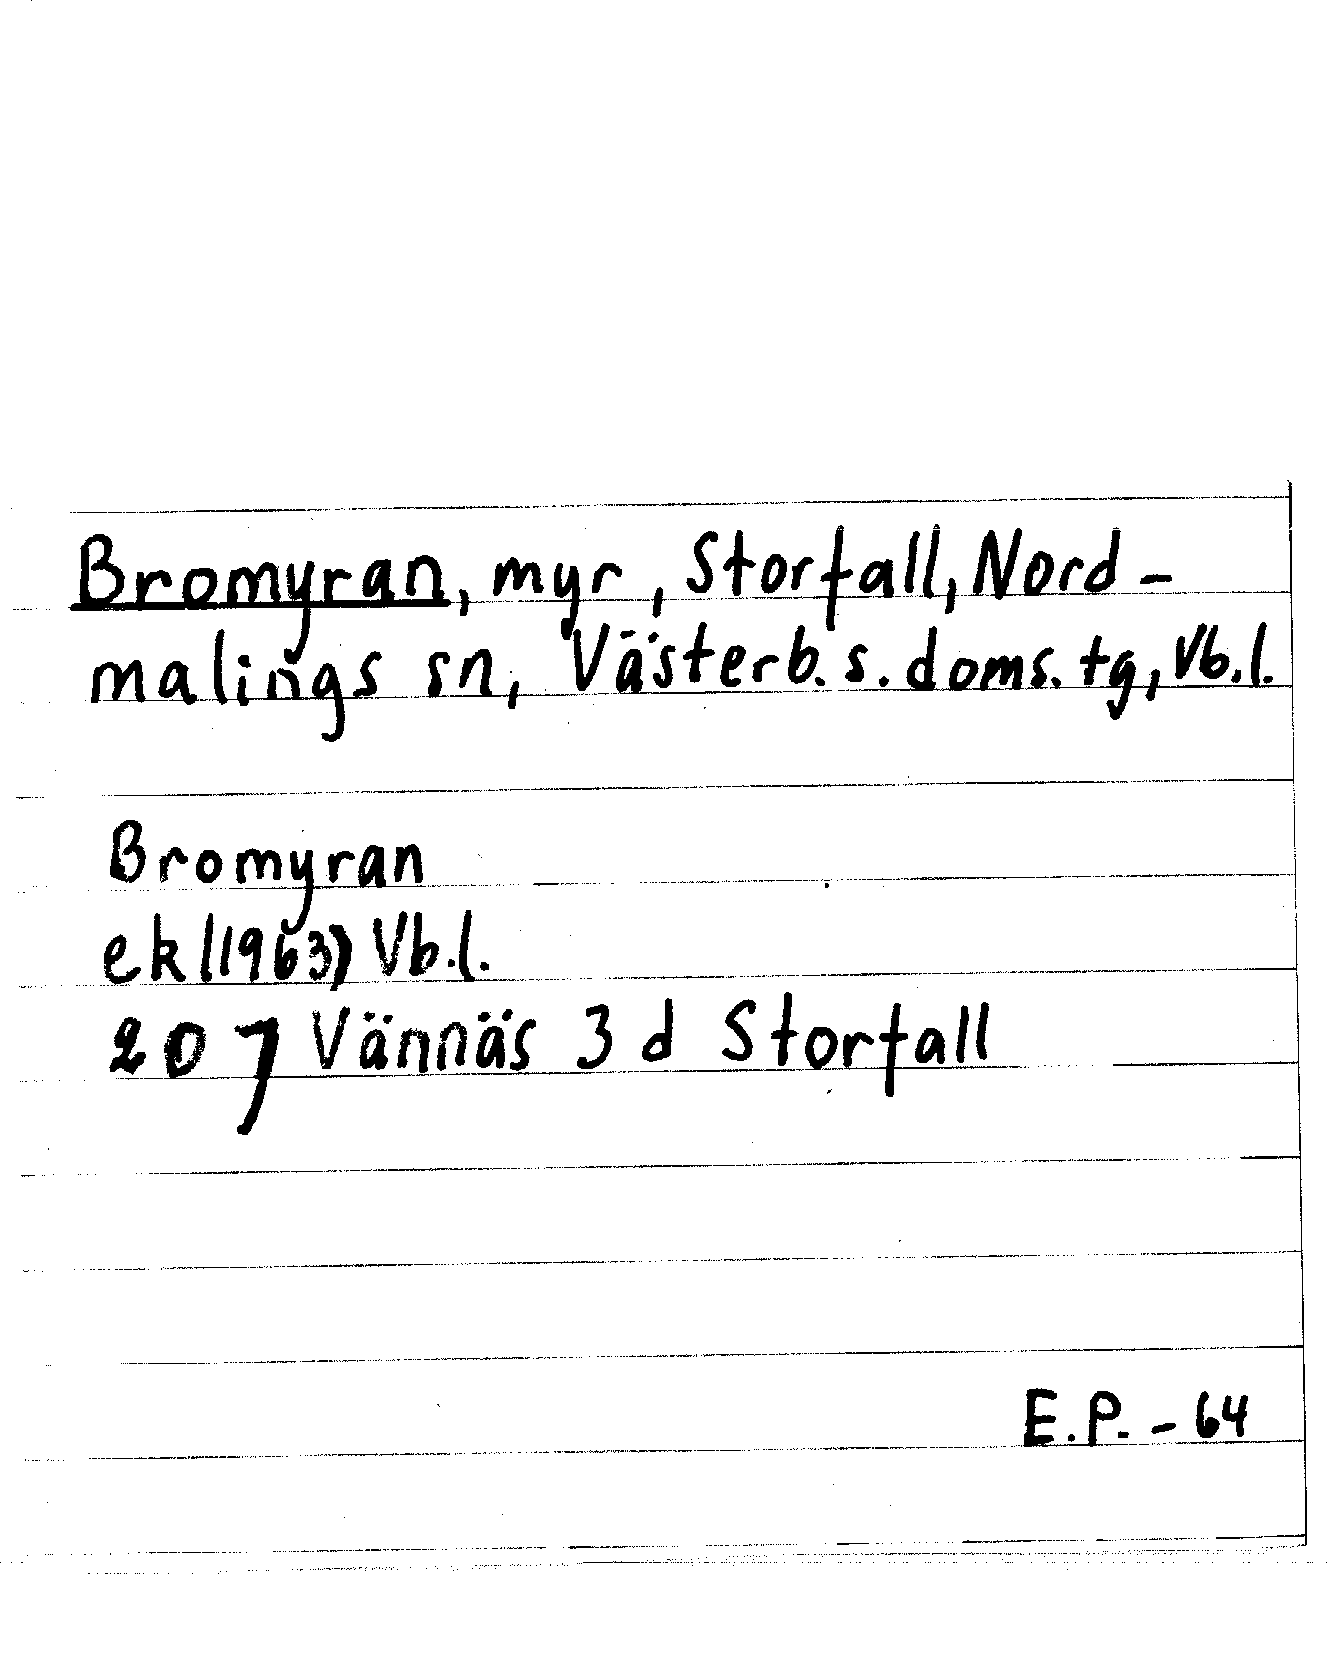 Bromyran, myr, Storfall, Nord-
malings sn, Västerb. s. doms. tg, Vb.l.
Bromyran
ek (1963) Vb.l.
207 Vännäs 3 d Storfall
E.P. - 64